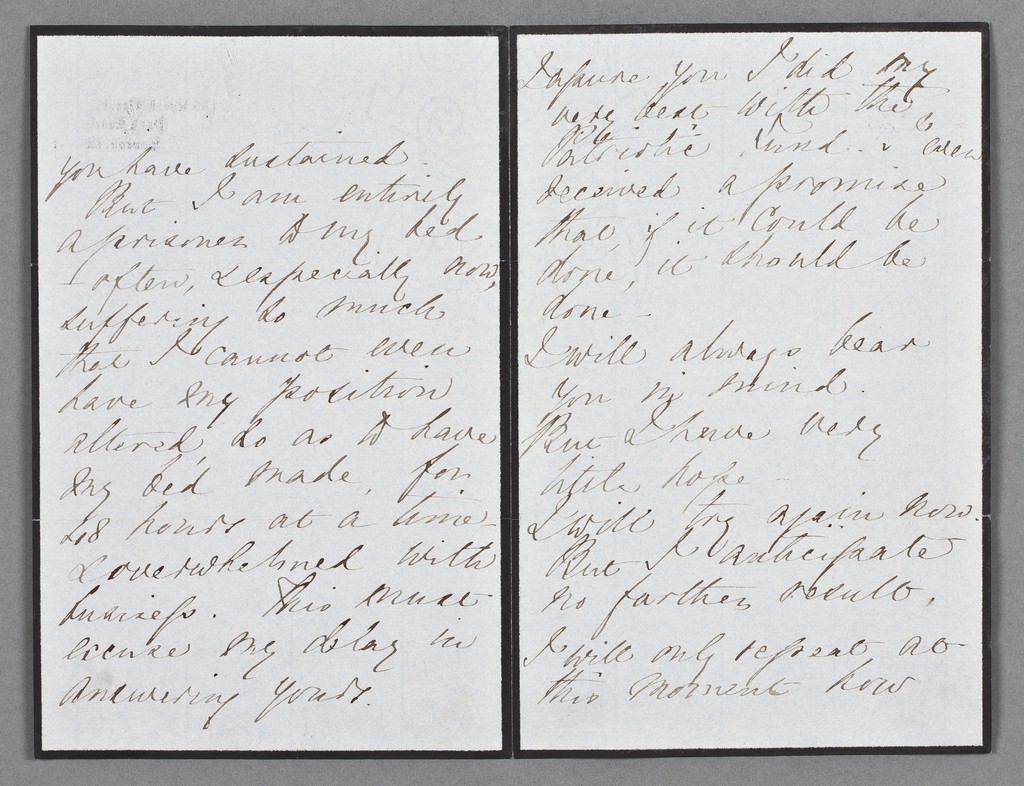 you have sustained.
But I am entirely
a prisoner to my bed
- often, & especially now,
suffering so much
that I cannot even
have my position
altered, so as to have
my bed made, for
48 hours at a time -
& overwhelmed with
business. This must
excuse my delay in
answering yours.
I assure you I did my
very best with the
Patriotic Fund - & even
received a promise
that, if it could be
done, it should be
done -
I will always bear
you in mind.
But I have very
little hope -
I will try again now.
But I anticipate
no farther result.
I will only repeat at
this moment how